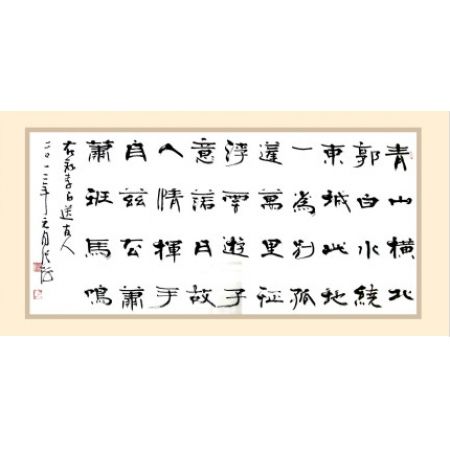 青山橫北
郭白水繞
東城此地
一為別孤
蓬萬里征
浮雲遊子
意落日故
人情揮手
自茲去蕭
蕭班馬鳴
右录李白送友人
二〇一三年元月